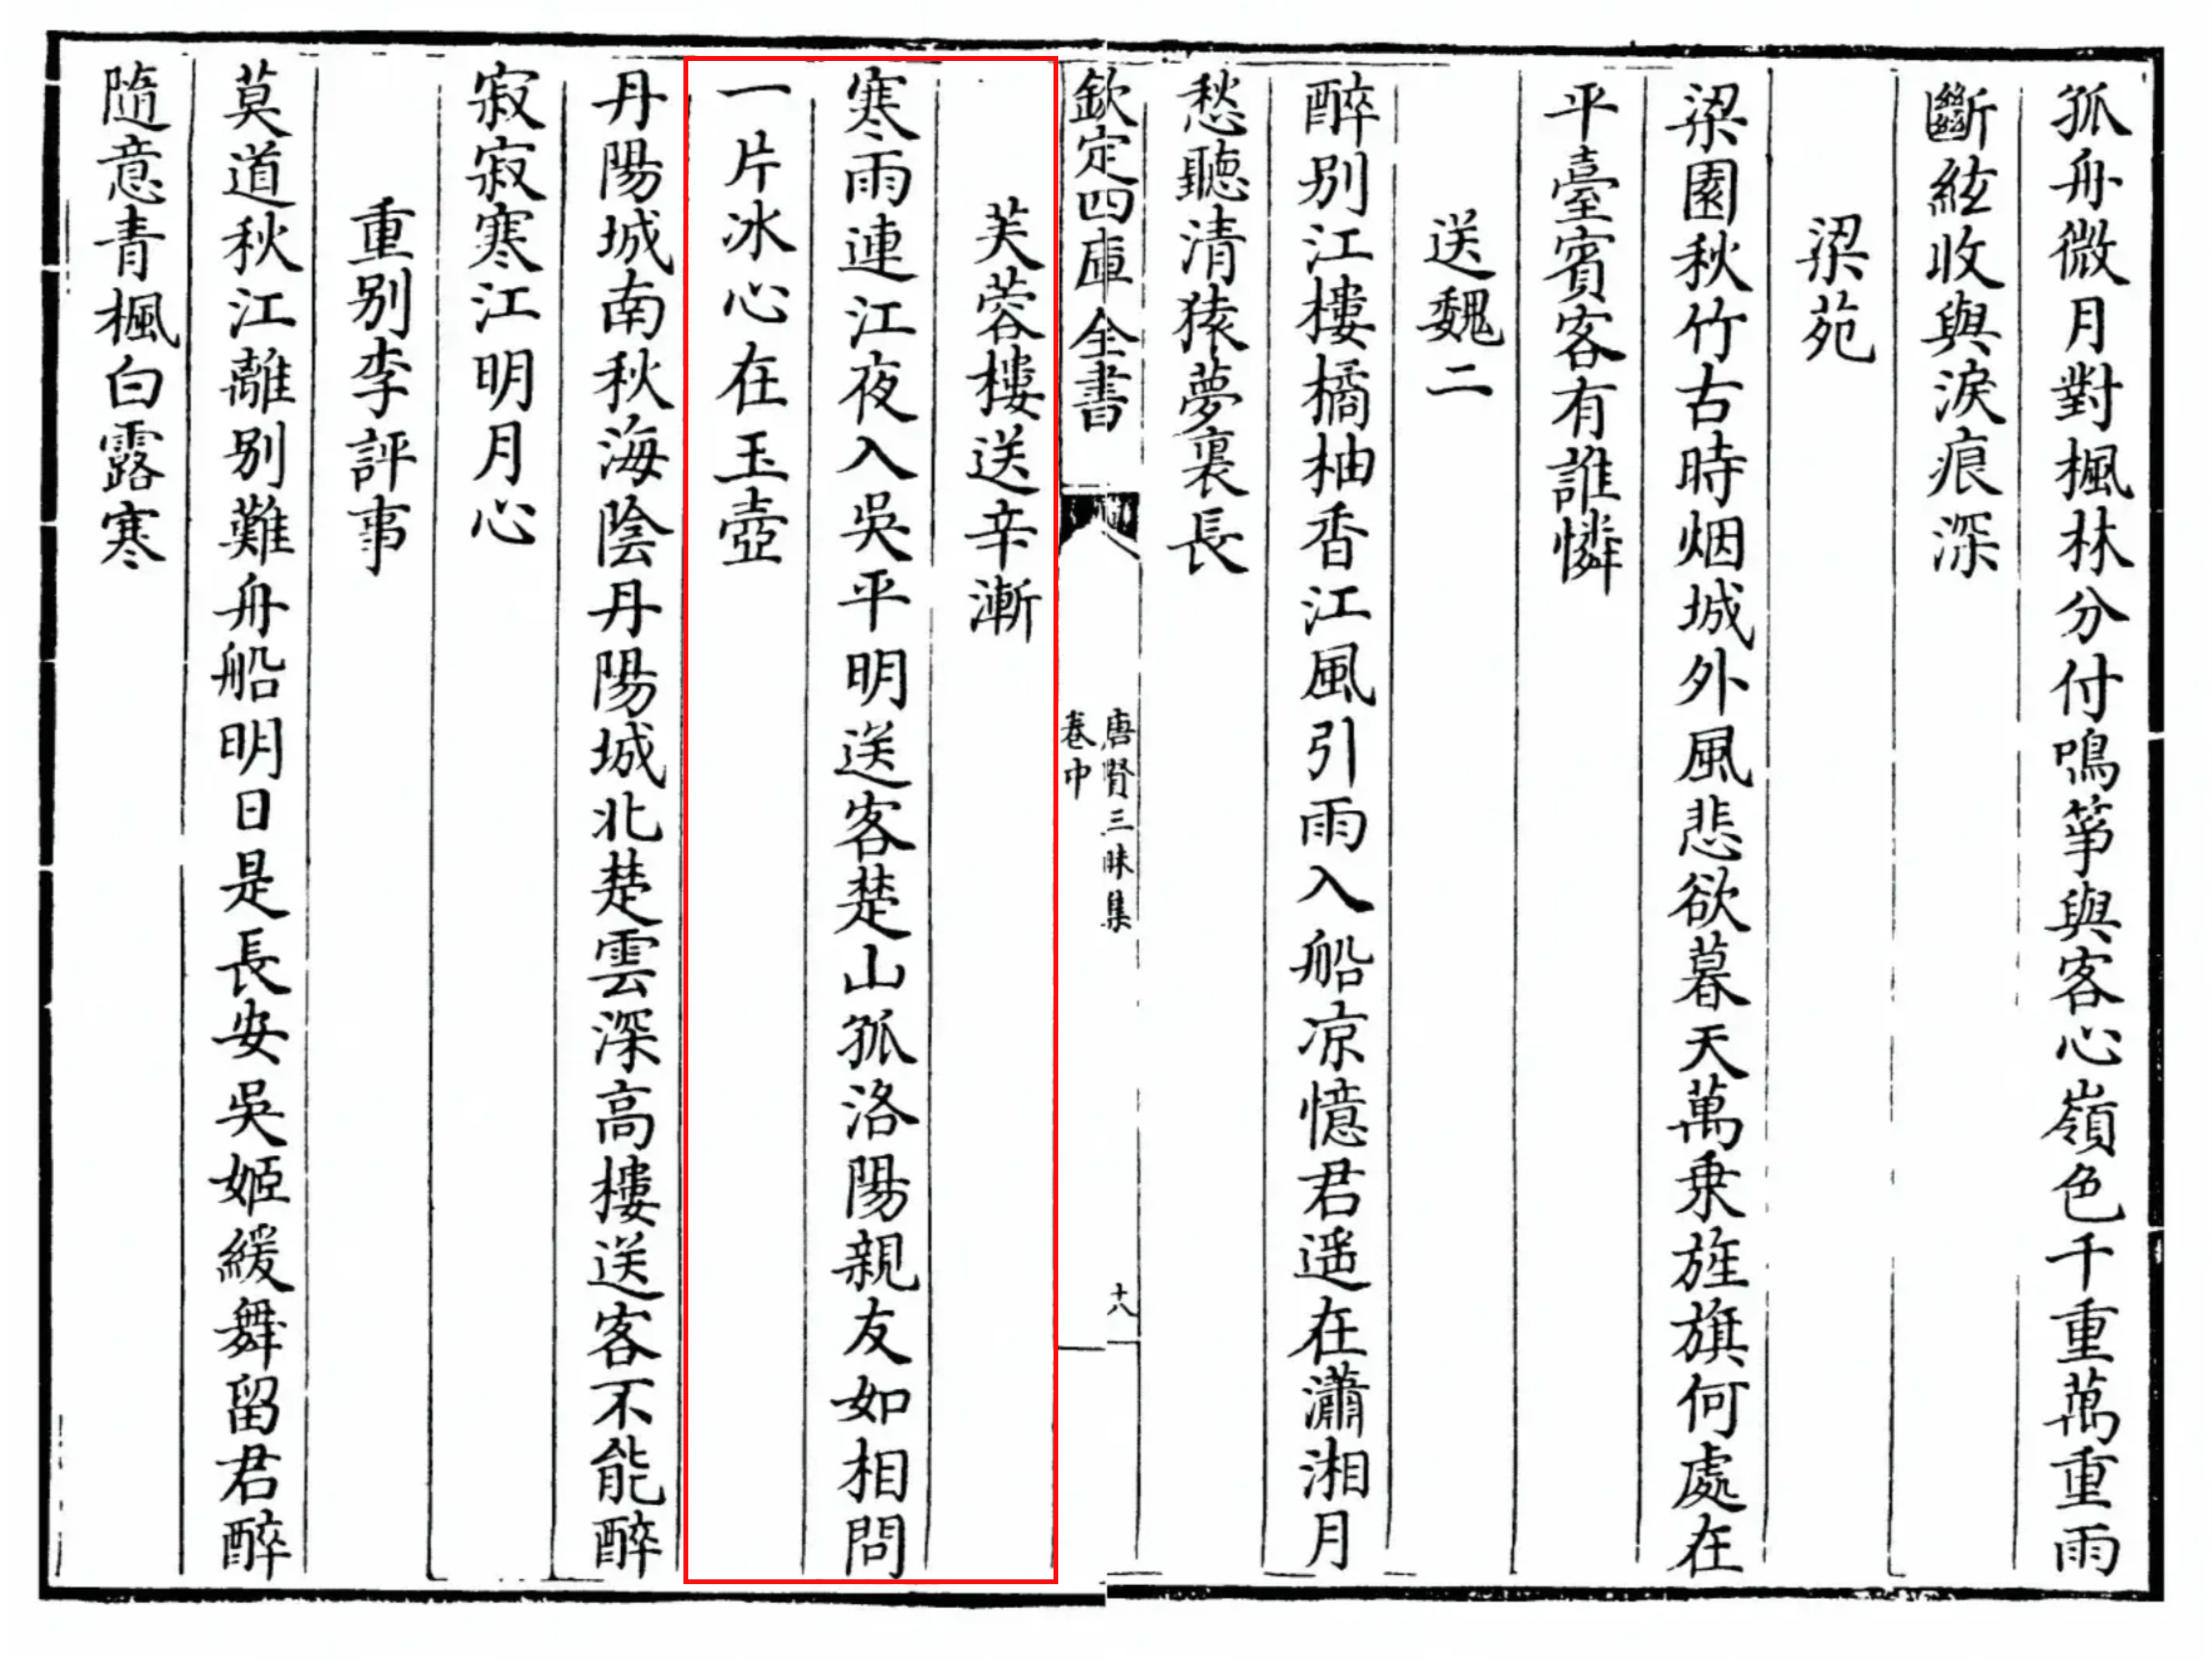 孤舟微月對楓林分付鳴箏與客心嶺色千重萬重雨
斷絃收與淚痕深
梁苑
梁園秋竹古時烟城外風悲欲暮天萬乗旌旗何處在
平臺賓客有誰憐
送魏二
醉别江樓橘柚香江風引雨入船凉憶君遥在瀟湘月
愁聽清猿夢裏長
欽定四庫全書
唐賢三昧集
卷中
十八
芙蓉樓送辛漸
寒雨連江夜入吳平明送客楚山孤洛陽親友如相問
一片冰心在玉壺
丹陽城南秋海陰丹陽城北楚雲深高樓送客不能醉
寂寂寒江明月心
重别李評事
莫道秋江離别難舟船明日是長安吳姬緩舞留君醉
隨意青楓白露寒